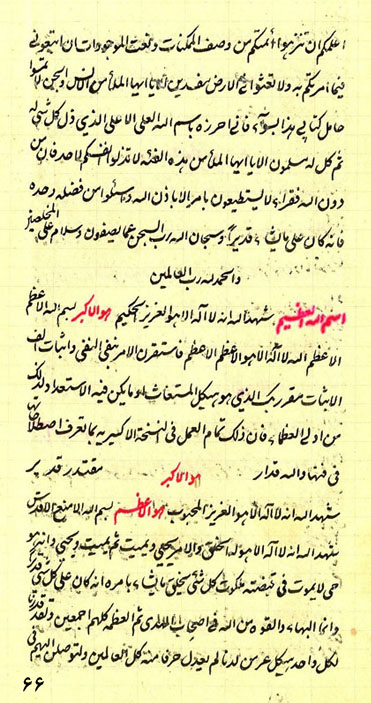 علمكم ان تنزهوا أئمتكم من وصف الممكنات ونعت الموجودات ان اتبعونى
فيما امرتكم به ولا تعثوا فى الارض مفسدين الا يا ايها الملأ من الانس والجن لا تمسوا
حامل كتابى هذا بسوآء فانى احرزه باسم الله العلى الاعلى الذى ذل كل شئ له
ثم كل له مسلمون الا يا ايها الملأ من هذه الفئة لا تذلوا انفسكم لاحد فان من
دون الله فقراء لا يستطيعون بامر الا باذن الله وسئلوا من فضله وحده
فانه كان على ما يشاء قديرا وسبحان الله رب السموات عما يصفون وسلام على المخلصين
والحمد لله رب العالمين
اسم الله العظيم شهد الله انه لا اله الا هو العزيز الحكيم هو الاكبر بسم الله الاعظم
الاعظم الله لا اله الا هو الاعظم الاعظم فاستقرن الامر بنفى النفى واثبات الف
الاثبات مقر ربك الذى هو هيكل المستغاث لو ما يكن فيه الاستعداد ولذلك
من اولى العطاء فان ذلك تمام العمل فى النسخة الاكسيرية بما تعرف اصطلاحاتها
فى فنها والله قدار هو الاكبر مقتدر قدير
شهد الله انه لا اله الا هو العزيز المحبوب هو الاعظم بسم الله الامنع الاقدس
شهد الله انه لا اله الا هو له الخلق والامر يحيى ويميت ثم يميت ويحيى وانه هو
حى لا يموت فى قبضته ملكوت كل شئ يخلق ما يشاء بامره انه كان على كل شئ قديرا
وانما البهاء والقوة من الله فى اصحاب ثم العظمة كلهم اجمعين
لكل واحد هيكل عز من لدنا لم يعدل حرفا منه كل العالمين
۶۶